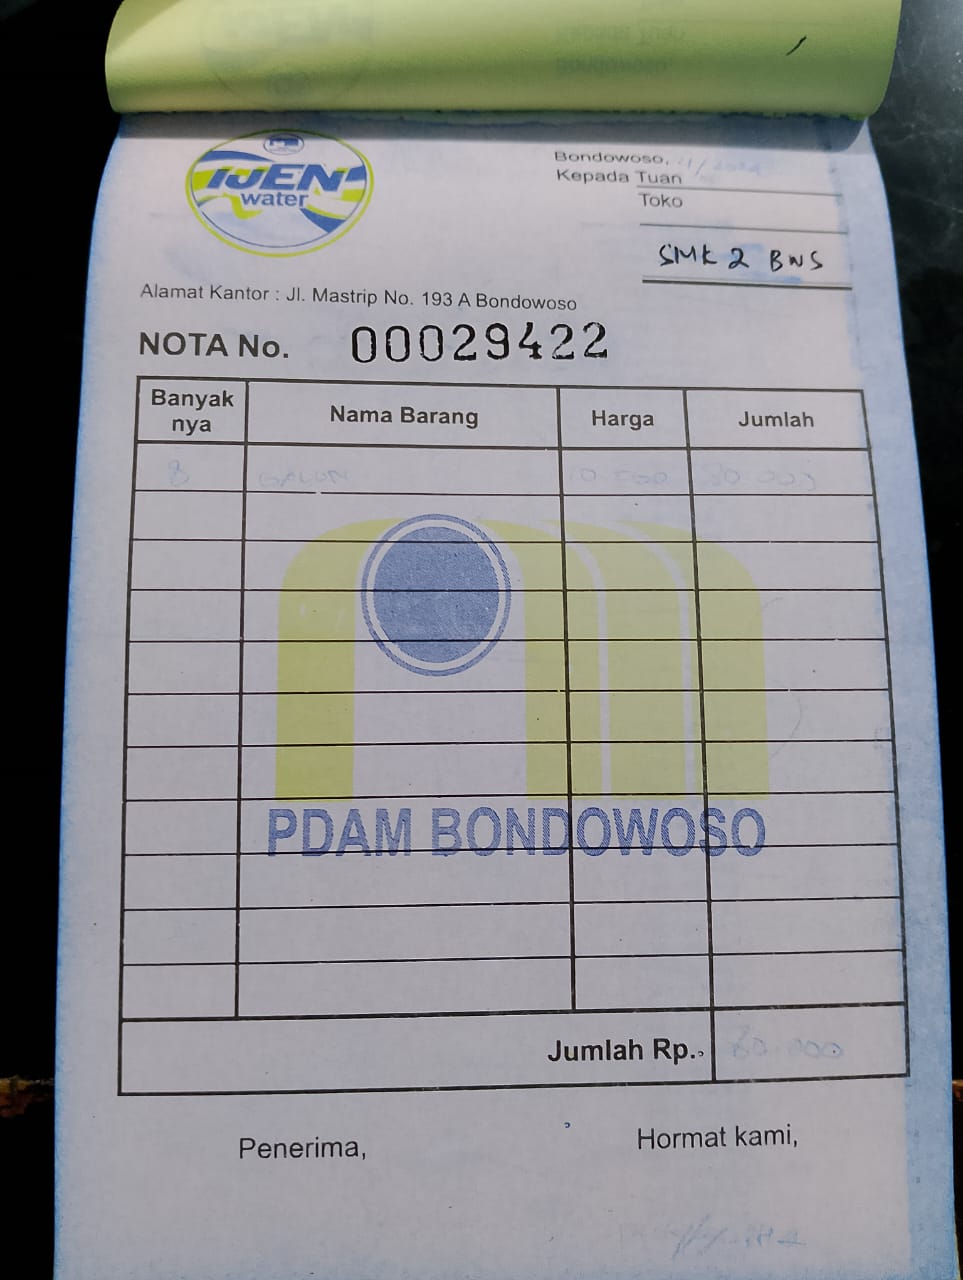 IJEN
water
Bondowoso,
Kepada Tuan
Toko
SMK 2 BWS
Alamat Kantor : Jl. Mastrip No. 193 A Bondowoso
NOTA No. 00029422
Banyak nya Nama Barang Harga Jumlah
8 GALON 10.000 80.000
PDAM BONDOWOSO
Jumlah Rp. 80.000
Penerima, Hormat kami,